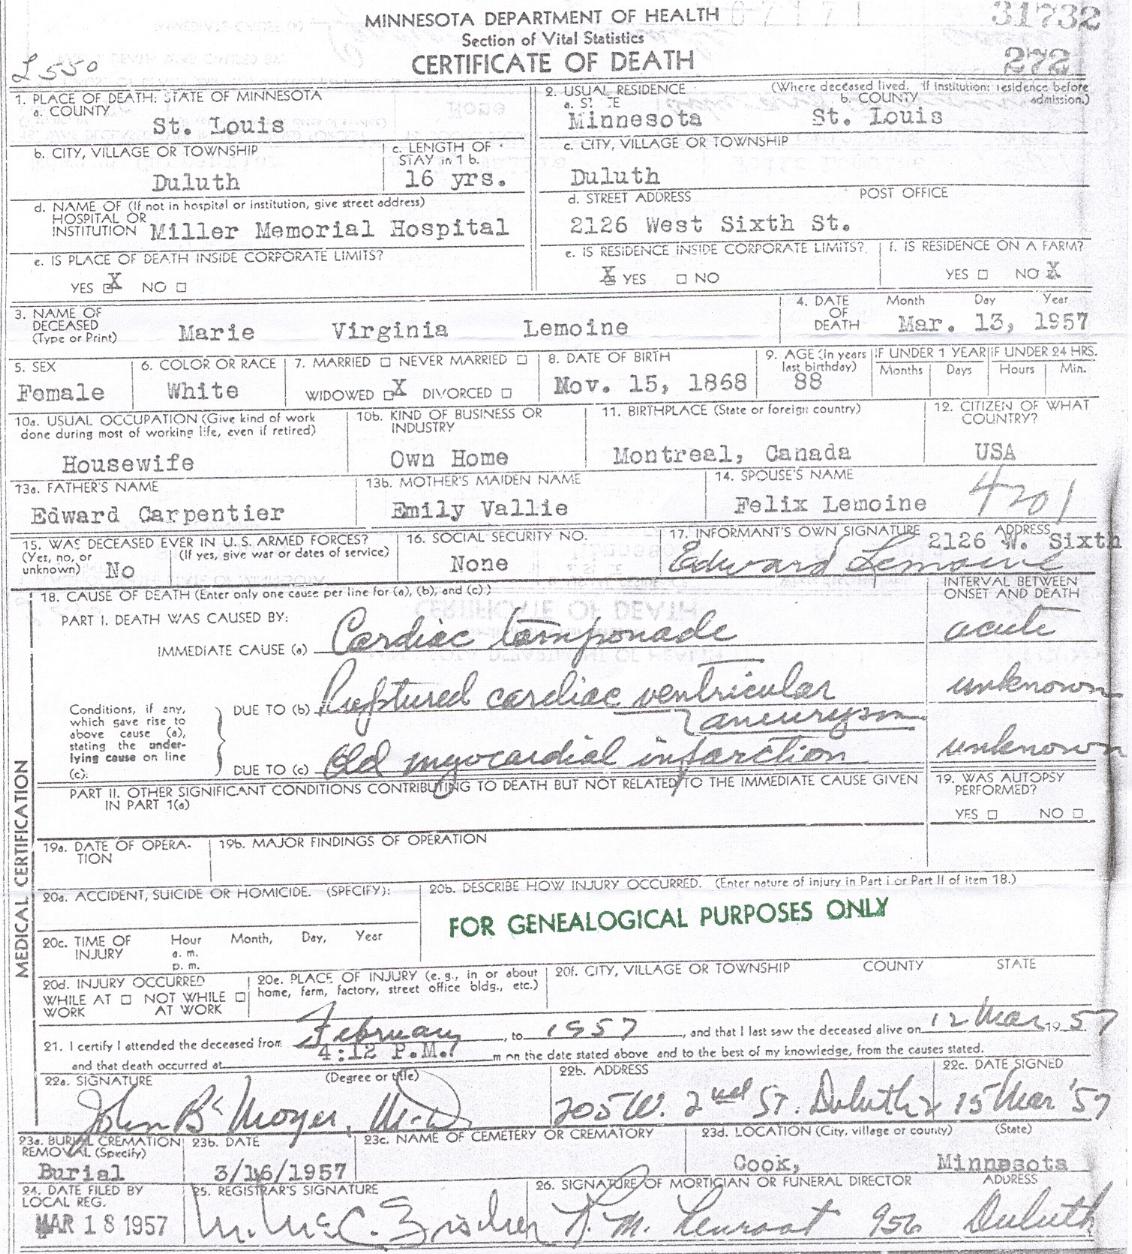 MINNESOTA DEPARTMENT OF HEALTH
Section of Vital Statistics
CERTIFICATE OF DEATH
31732
272
L550
1. PLACE OF DEATH: STATE OF MINNESOTA
a. COUNTY
St. Louis
2. USUAL RESIDENCE (Where deceased lived. If institution: residence before admission.)
a. ST TE
Minnesota
b. COUNTY
St. Louis
b. CITY, VILLAGE OR TOWNSHIP
Duluth
c. LENGTH OF STAY in 1 b.
16 yrs.
c. CITY, VILLAGE OR TOWNSHIP
Duluth
d. NAME OF (If not in hospital or institution, give street address)
HOSPITAL OR INSTITUTION Miller Memorial Hospital
d. STREET ADDRESS POST OFFICE
2126 West Sixth St.
e. IS PLACE OF DEATH INSIDE CORPORATE LIMITS?
YES ☒ NO ☐
e. IS RESIDENCE INSIDE CORPORATE LIMITS?
X YES ☐ NO
f. IS RESIDENCE ON A FARM?
YES ☐ NO X
3. NAME OF DECEASED (Type or Print)
Marie Virginia Lemoine
4. DATE OF DEATH Month Day Year
Mar. 13, 1957
5. SEX
Female
6. COLOR OR RACE
White
7. MARRIED ☐ NEVER MARRIED ☐
WIDOWED ☒ DIVORCED ☐
8. DATE OF BIRTH
Nov. 15, 1868
9. AGE (In years last birthday)
88
IF UNDER 1 YEAR
Months Days
IF UNDER 24 HRS.
Hours Min.
10a. USUAL OCCUPATION (Give kind of work done during most of working life, even if retired)
Housewife
10b. KIND OF BUSINESS OR INDUSTRY
Own Home
11. BIRTHPLACE (State or foreign country)
Montreal, Canada
12. CITIZEN OF WHAT COUNTRY?
USA
13a. FATHER'S NAME
Edward Carpentier
13b. MOTHER'S MAIDEN NAME
Emily Vallie
14. SPOUSE'S NAME
Felix Lemoine
4201
15. WAS DECEASED EVER IN U.S. ARMED FORCES?
(Yes, no, or unknown) (If yes, give war or dates of service)
No
16. SOCIAL SECURITY NO.
None
17. INFORMANT'S OWN SIGNATURE ADDRESS
Edward Lemoine 2126 W. Sixth
18. CAUSE OF DEATH (Enter only one cause per line for (a), (b), and (c))
INTERVAL BETWEEN ONSET AND DEATH
PART I. DEATH WAS CAUSED BY:
IMMEDIATE CAUSE (a) Cardiac tamponade acute
Conditions, if any, which gave rise to above cause (a), stating the underlying cause on line (c).
DUE TO (b) Ruptured cardiac ventricular aneurysm unknown
DUE TO (c) Old myocardial infarction unknown
PART II. OTHER SIGNIFICANT CONDITIONS CONTRIBUTING TO DEATH BUT NOT RELATED TO THE IMMEDIATE CAUSE GIVEN IN PART 1(a)
19. WAS AUTOPSY PERFORMED?
YES ☐ NO ☐
19a. DATE OF OPERATION
19b. MAJOR FINDINGS OF OPERATION
20a. ACCIDENT, SUICIDE OR HOMICIDE. (SPECIFY):
20b. DESCRIBE HOW INJURY OCCURRED. (Enter nature of injury in Part I or Part II of item 18.)
FOR GENEALOGICAL PURPOSES ONLY
20c. TIME OF INJURY Hour a. m. p. m. Month, Day, Year
20d. INJURY OCCURRED
WHILE AT WORK ☐ NOT WHILE AT WORK ☐
20e. PLACE OF INJURY (e. g., in or about home, farm, factory, street office bldg., etc.)
20f. CITY, VILLAGE OR TOWNSHIP COUNTY STATE
21. I certify I attended the deceased from February, to 1957, and that I last saw the deceased alive on 12 Mar 1957
and that death occurred at 4:12 P.M. m on the date stated above and to the best of my knowledge, from the causes stated.
22a. SIGNATURE (Degree or title)
John B Moyer, M.D.
22b. ADDRESS
205 W. 2nd St. Duluth 2
22c. DATE SIGNED
15 Mar '57
23a. BURIAL CREMATION REMOVAL (Specify)
Burial
23b. DATE
3/16/1957
23c. NAME OF CEMETERY OR CREMATORY
23d. LOCATION (City, village or county) (State)
Cook, Minnesota
24. DATE FILED BY LOCAL REG.
MAR 18 1957
25. REGISTRAR'S SIGNATURE
M. McC. Fischer
26. SIGNATURE OF MORTICIAN OR FUNERAL DIRECTOR ADDRESS
956 Duluth
MEDICAL CERTIFICATION